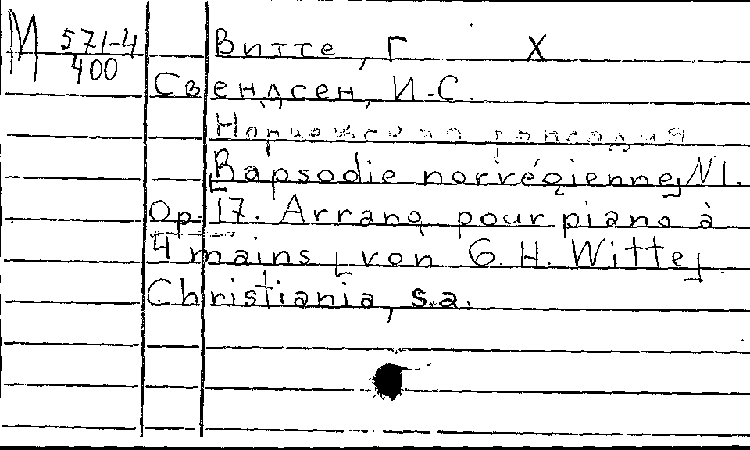 М 571-4
400
Витте, Г Х
Свендсен, И.С.
Норвежская рапсодия
[Rapsodie norvégienne] N1.
Op. 17. Arrang pour piano à
4 mains [von G.H. Witte]
Christiania, s.a.